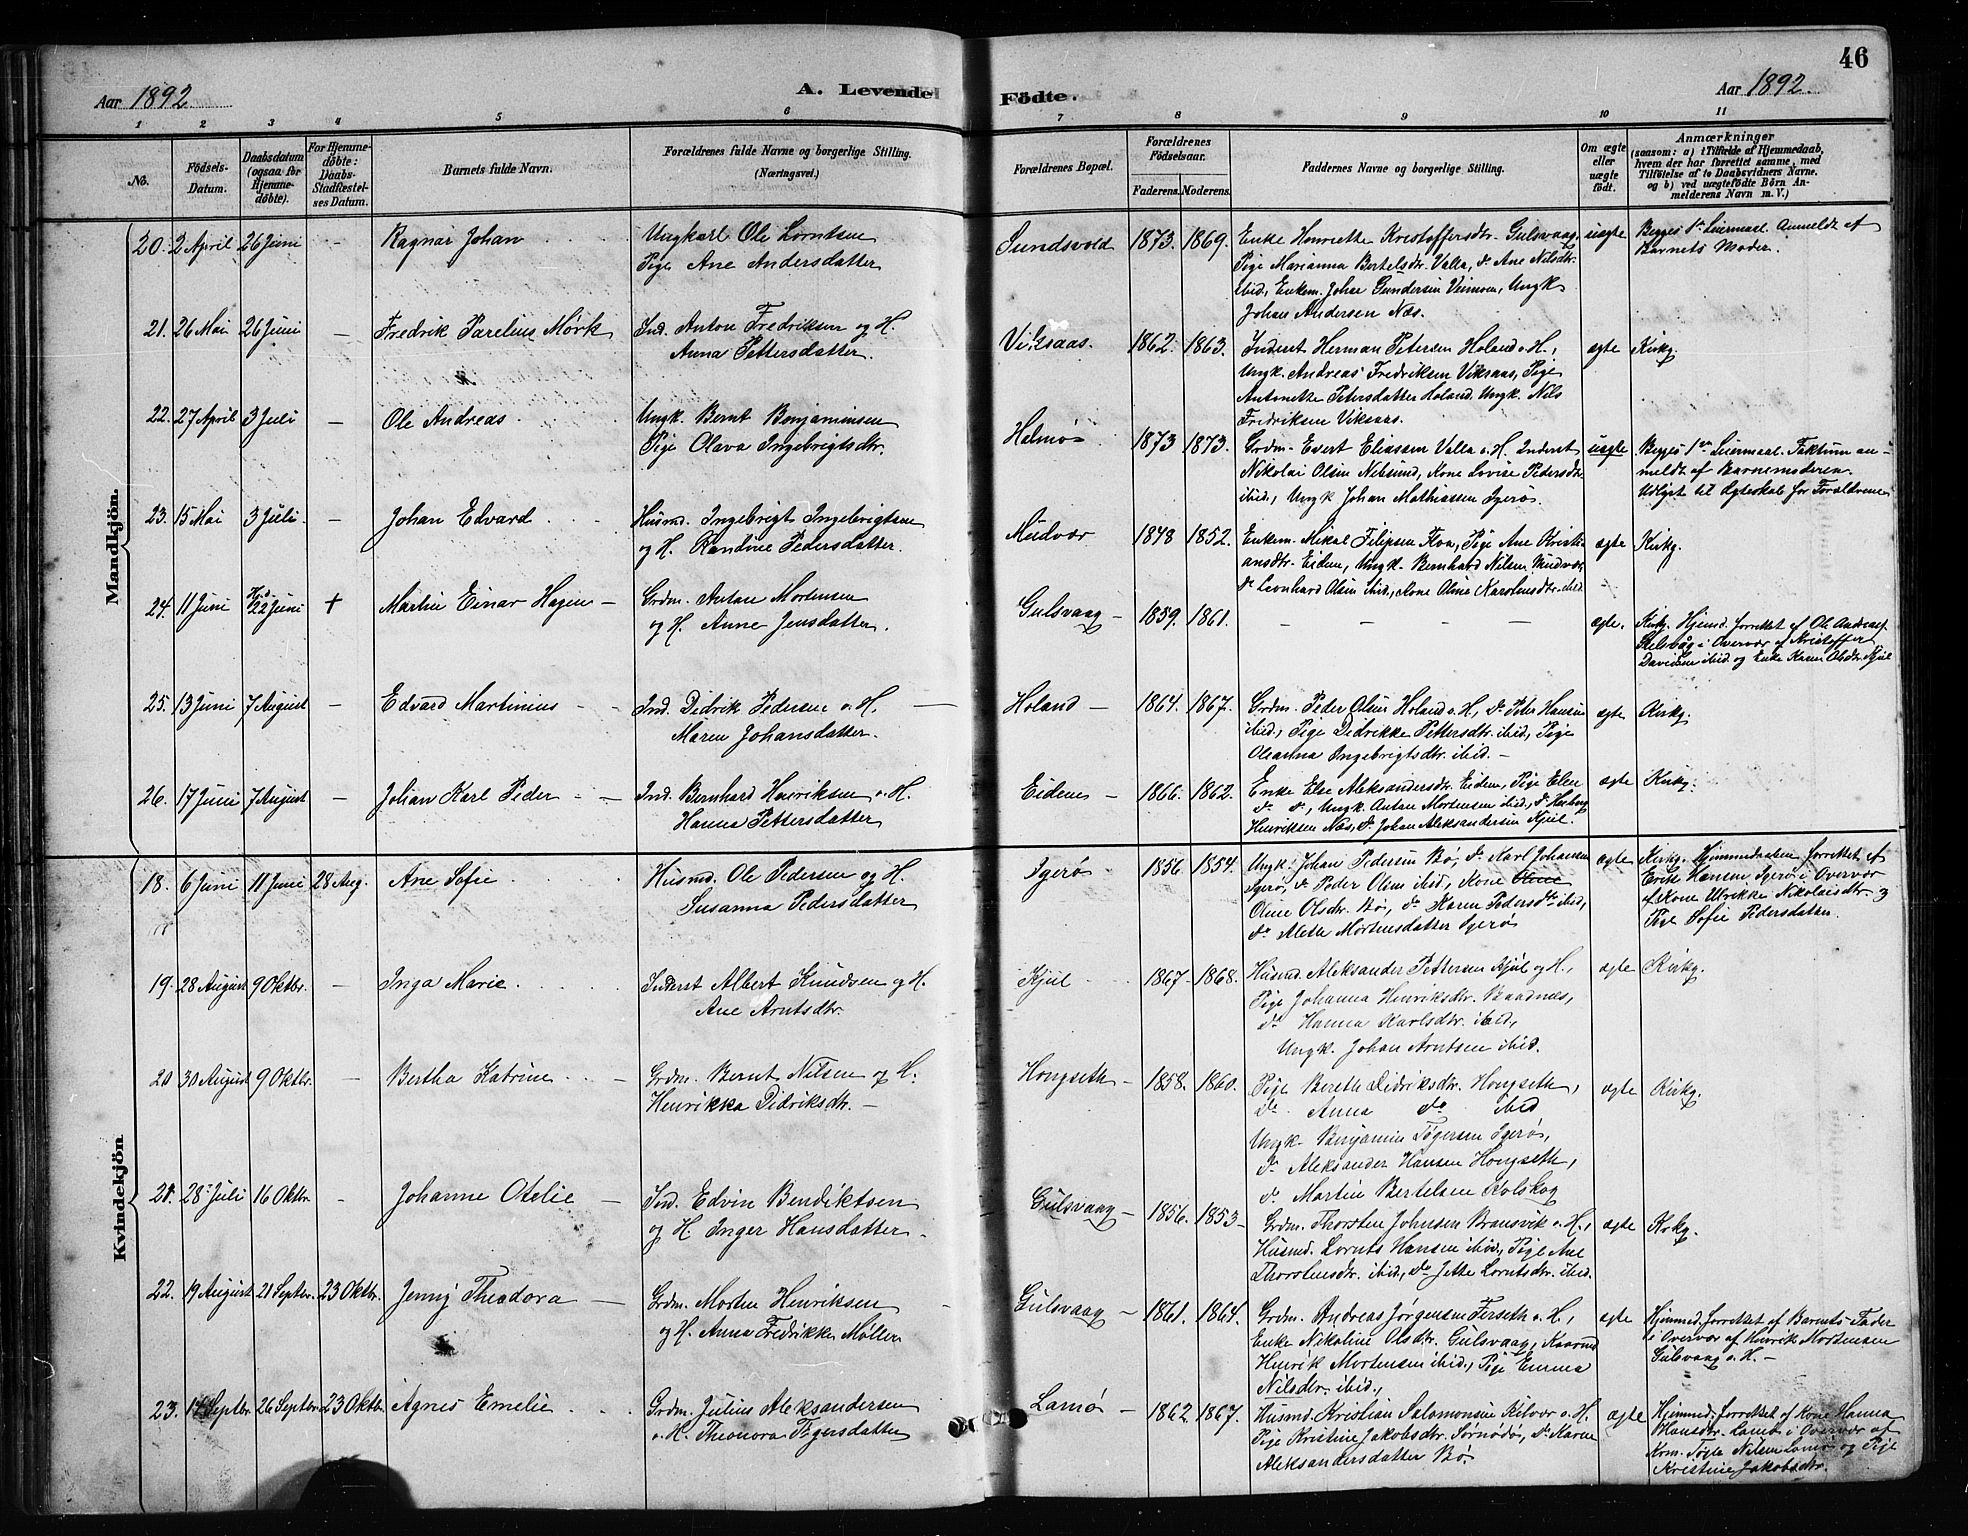 46
Aar 1892. A. Levende Fødte. Aar 1892.
1 2 3 4 5 6 7 8 9 10 11
No.
Fødsels-Datum.
Daabsdatum (ogsaa for Hjemme-døbte).
For Hjemme-døbte: Daabs-Stadfæstel-ses Datum.
Barnets fulde Navn.
Forældrenes fulde Navne og borgerlige Stilling.
(Næringsvei.)
Forældrenes Bopæl.
Forældrenes Fødselsaar.
Faderens. Moderens.
Faddernes Navne og borgerlige Stilling.
Om ægte eller uægte født.
Anmærkninger
(saasom: a) i Tilfælde af Hjemmedaab, hvem der har forrettet samme, med Tilføielse af to Daabsvidners Navne. og b) ved uægtefødte Børn An-melderens Navn m. V.)
Mandkjön.
20. 2 April 26 Juni - Ragnar Johan
Ungkarl Ole Lorntsen
Pige Ane Andersdatter
Sundsvold 1873. 1869.
Enke Henriette Kristoffersdtr. Gulsvaag,
Pige Marianna Bertelsdtr. Valla, do Ane Nilsdtr.
ibid, Enkem. Johse Gundersen Veimoen, Ungk
Johan Andersen Næs.
uægte
Begges 1ste Leiermaal. Anmeldt af
Barnets Moder.
21. 26 Mai 26 Juni - Fredrik Parelius Mörk
Ind. Anton Fredriksen og H.
Anna Pettersdatter.
Viksaas. 1862. 1863.
Inderst Herman Petersen Holand o. H.,
Ungk. Andreas Fredriksen Viksaas, Pige
Antonette Petersdatter Holand. Ungk. Nils
Fredriksen Viksaas.
ægte Kirkg.
22. 27 April 3 Juli - Ole Andreas
Ungk. Bernt Benjaminsen
Pige Olava Ingebrigtsdtr.
Helmø 1873 1873.
Grdm. Evert Eliassen Valla o. H. Inderst
Nikolai Olsen Nelsund, Kone Lovise Pedersdtr
ibid, Ungk Johan Mathiassen Igerø.
uægte
Begges 1ste Leiermaal. Faktum an-
meldt af Barnemoderen.
Udlyst til Ægteskab for Forældrene
23. 15 Mai 3 Juli. - Johan Edvard
Husmd. Ingebrigt Ingebrigtsen
og H. Randine Pedersdatter.
Mudvær 1848 1852.
Enkem. Mikal Filipsen Floa, Pige Ane Kristi-
ansdtr. Eiden, Ungk. Bernhard Nilsen Mudvær
do Leonhard Olsen ibid, Kone Olina Karolusdtr. ibid
ægte Kirkg.
24. 11 Juni Hjd. 22 Juni + Martin Einar Hagen -
Grdm. Antan Mortensen
og H. Anne Jensdatter.
Gulsvaag - 1859. 1861. - - - -
ægte.
Kirkg. Hjemd. forrettet af Ole Andreas
i Overvær af Kristoffer
Davidsen ibid og Enke Karen Olsdtr. Kjul
25. 13 Juni 7 August - Edvard Martinius - -
Ind. Didrik Pedersen o. H. -
Maren Johansdatter.
Holand - 1864. 1867.
Grdm. Peder Olsen Holand o. H, do Peter Hansen
ibid, Pige Didrikke Pettersdtr. ibid, Pige
Oleanna Ingebrigtsdtr. ibid. -
ægte Kirkg.
26. 17 Juni 7 August - Johan Karl Peder - -
Ind. Bernhard Henriksen o. H.
Hanna Pettersdatter
Eidem - 1866. 1862.
Enke Else Aleksandersdtr. Eidem, Pige Else
do do, Ungk. Antan Mortensen ibid, do
Henriksen Næs, do Johan Aleksandersen Kjul.
ægte Kirkg.
Kvindekjön.
18. 6 Juni 11 Juni 28 Aug. Ane Sofie
Husmd. Ole Pedersen og H.
Susanna Pedersdatter
Igerø 1856 1854.
Ungk. Johan Pedersen Bø, do Karl Johansen
Igerø, do Peder Olsen ibid, Kone Oline
Oline Olsdtr. Bø, do Karen Pedersdtr ibid,
do Aleth Mortensdatter Igerø
ægte
Kirkg. Hjemmedaaben forrettet af
Erik Hansen Igerø i Overvær
af Kone Ulrikke Nikolaisdtr. og
Pige Sofie Pedersdatter.
19. 28 August 9 Oktbr. - Inga Marie
Inderst Albert Knudsen og H.
Ane Arntsdtr.
Kjul 1867 1868.
Husmd. Aleksander Pettersen Kjul og H.,
Pige Johanna Henriksdtr. Baadnæs,
do Hanna Karlsdtr. ibid,
Ungk. Johan Arntsen ibid.
ægte Kirkg.
20 30 August 9 Oktbr. - Bertha Katrine
Grdm. Bernt Nilsen og H.
Henrikka Didriksdtr. -
Hongseth - 1858. 1860.
Pige Bereth Didriksdtr. Hongseth,
do. Anna do ibid
Ungk. Benjamin Tøgersen Igerø,
do Aleksander Hansen Hongseth,
do Martin Bertelsen Kolskog
ægte Kirkg.
21. 28 Juli 16 Oktbr. - Johanne Otelie -
Ind. Edvin Bendiktsen
og H. Inger Hansdatter.
Gulsvaag - 1856. 1853
Grdm. Thorsten Johnsen Bransvik o. H.,
Husmd. Lornts Hansen ibid, Pige Ane
Thorstensdtr. ibid, do Jette Lorntsdtr. ibid.
ægte Kirkg.
22. 19 August 21 Septbr. 23 Oktbr. Jenny Theodora -
Grdm. Morten Henriksen
og H. Anna Fredrikke Møller
Gulsvaag - 1861. 1864.
Grdm. Andreas Jørgensen Forseth o. H,
Enke Nikoline Olsdtr. Gulsvaag, Kaarmd
Henrik Mortensen ibid., Pige Emma
Nilsdtr. ibid.,
ægte
Hjemmed. forrettet af Barnets Fader
i Overvær af Henrik Mortensen
Gulsvaag o. H. -
23. 14 Septbr 26 Septbr 23 Oktbr. Agnes Emelie
Grdm. Julius Aleksandersen
o. H. Theonora Tøgersdatter
Lamø - 1862 1867.
Husmd. Kristian Salomonsen Kilvær o. H.
Pige Kristine Jakobsdtr. Sørnødø, do Karen
Aleksandersdatter Bø.
ægte
Hjemmed. forrettet af Kone Hanna
Hansdtr. Lamø i Overvær af
Kom. Tøger Nilsen Lamø og Pige
Kristine Jakobsdtr.